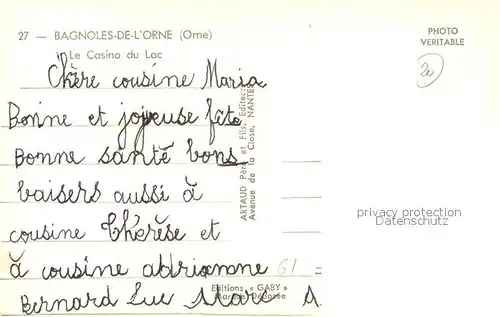 27 — BAGNOLES-DE-L'ORNE (Orne)
Le Casino du Lac
PHOTO
VERITABLE
20
Chère cousine Maria
Bonne et joyeuse fête
Bonne santé bons
baisers aussi à
cousine Thérèse et
à cousine adrienne
Bernard Luc Marc A
61
ARTAUD Père et Fils, Editeurs
Avenue de la Close, NANTES
privacy protection
Datenschutz
Editions « GABY »
Marque Déposée